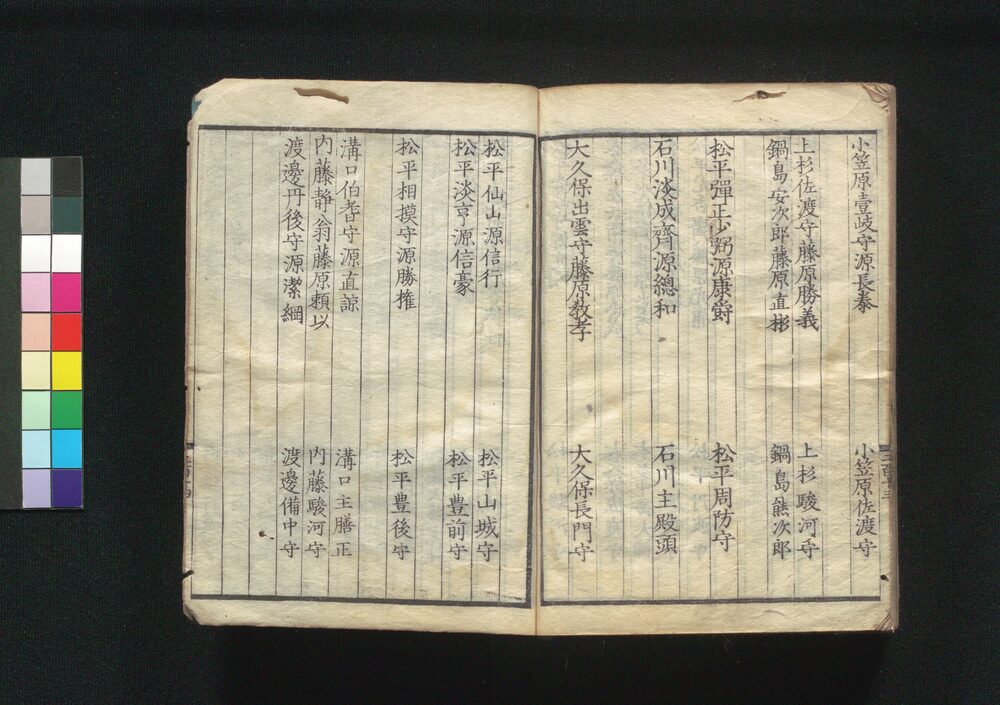 小笠原壹岐守源長泰
小笠原佐渡守
上杉佐渡守藤原勝義
上杉駿河守
鍋島安次郎藤原直彬
鍋島熊次郎
松平彈正少弼源康爵
松平周防守
石川淡成齋源總和
石川主殿頭
大久保出雲守藤原教孝
大久保長門守
松平仙山源信行
松平山城守
松平淡亨源信豪
松平豊前守
松平相摸守源勝権
松平豊後守
溝口伯耆守源直諒
溝口主膳正
内藤静翁藤原頼以
内藤駿河守
渡邊丹後守源潔綱
渡邊備中守